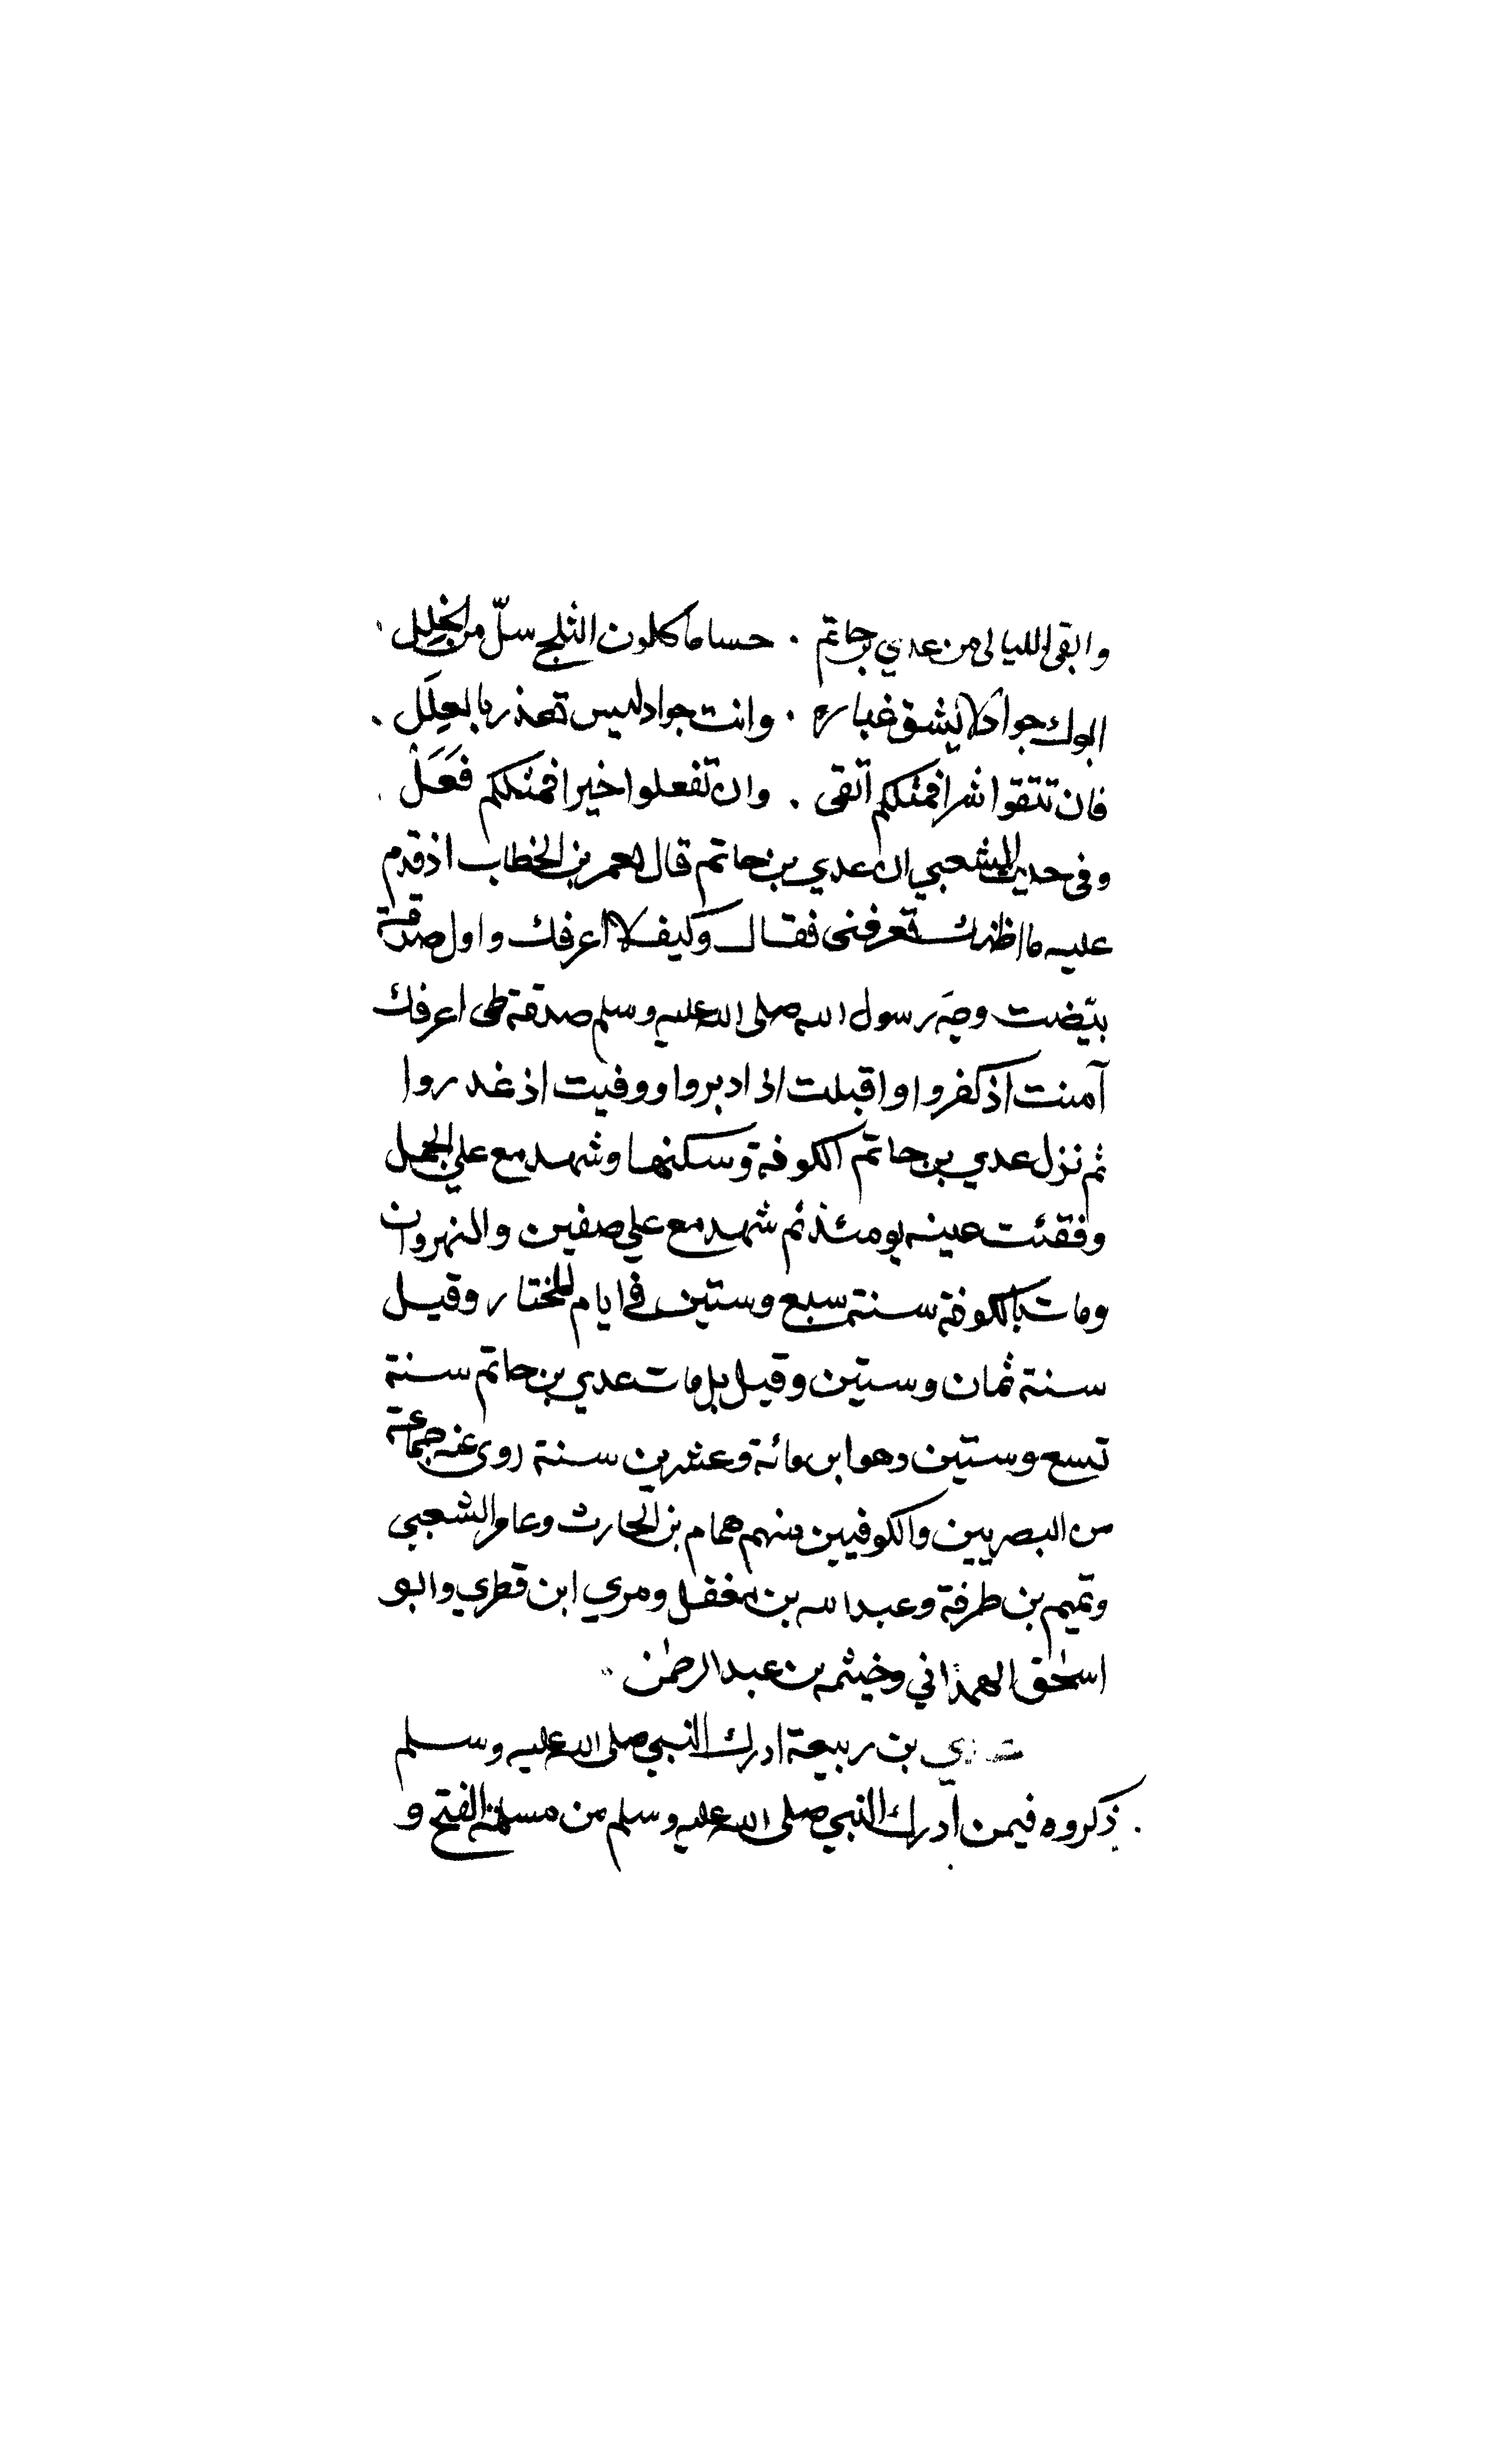 وابقى الليالى من عدي بن حاتم . حساما كلون الثلج سلّ من الخلل .
ابوك جواد لا يشق غباره . وانت جواد ليس تعذر بالعِلَل .
فان تتقوا شرا فمثلكم اتقى . وان تفعلوا خيرا فمثلكم فَعَلْ .
وفى حديث الشعبي ان عدي بن حاتم قال لعمر بن الخطاب اذ قدم
عليه ما اظنك تعرفنى فقال وكيف لا اعرفك واول صدقة
بيّضت وجه رسول الله صلى الله عليه وسلم صدقة طى اعرفك
آمنت اذ كفروا واقبلت اذ ادبروا ووفيت اذ غدروا
ثم نزل عدي بن حاتم الكوفة وسكنها وشهد مع علي الجمل
وفقئت عينه يومئذ ثم شهد مع علي صفين والنهروان
ومات بالكوفة سنة سبع وستين في ايام المختار وقيل
سنة ثمان وستين وقيل بل مات عدي بن حاتم سنة
تسع وستين وهو ابن مائة وعشرين سنة روى عنه جماعة
من البصريين والكوفيين منهم همام بن الحارث وعامر الشعبي
وتميم بن طرفة وعبد الله بن مغفل ومري ابن قطري وابو
اسحٰق الهمذاني وخيثمه بن عبد الرحمٰن
عدي بن ربيعة ادرك النبي صلى الله عليه وسلم
. ذكروه فيمن ادرك النبي صلى الله عليه وسلم من مسلمة الفتح و